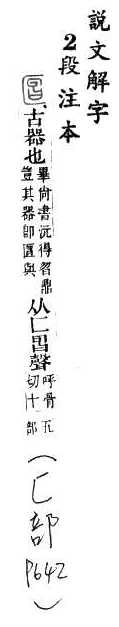 說文解字
2段注本
匫、古器也畢尚書沅得曶鼎豈其器卽匫與从匚曶聲呼骨切十五部(匚部P642)